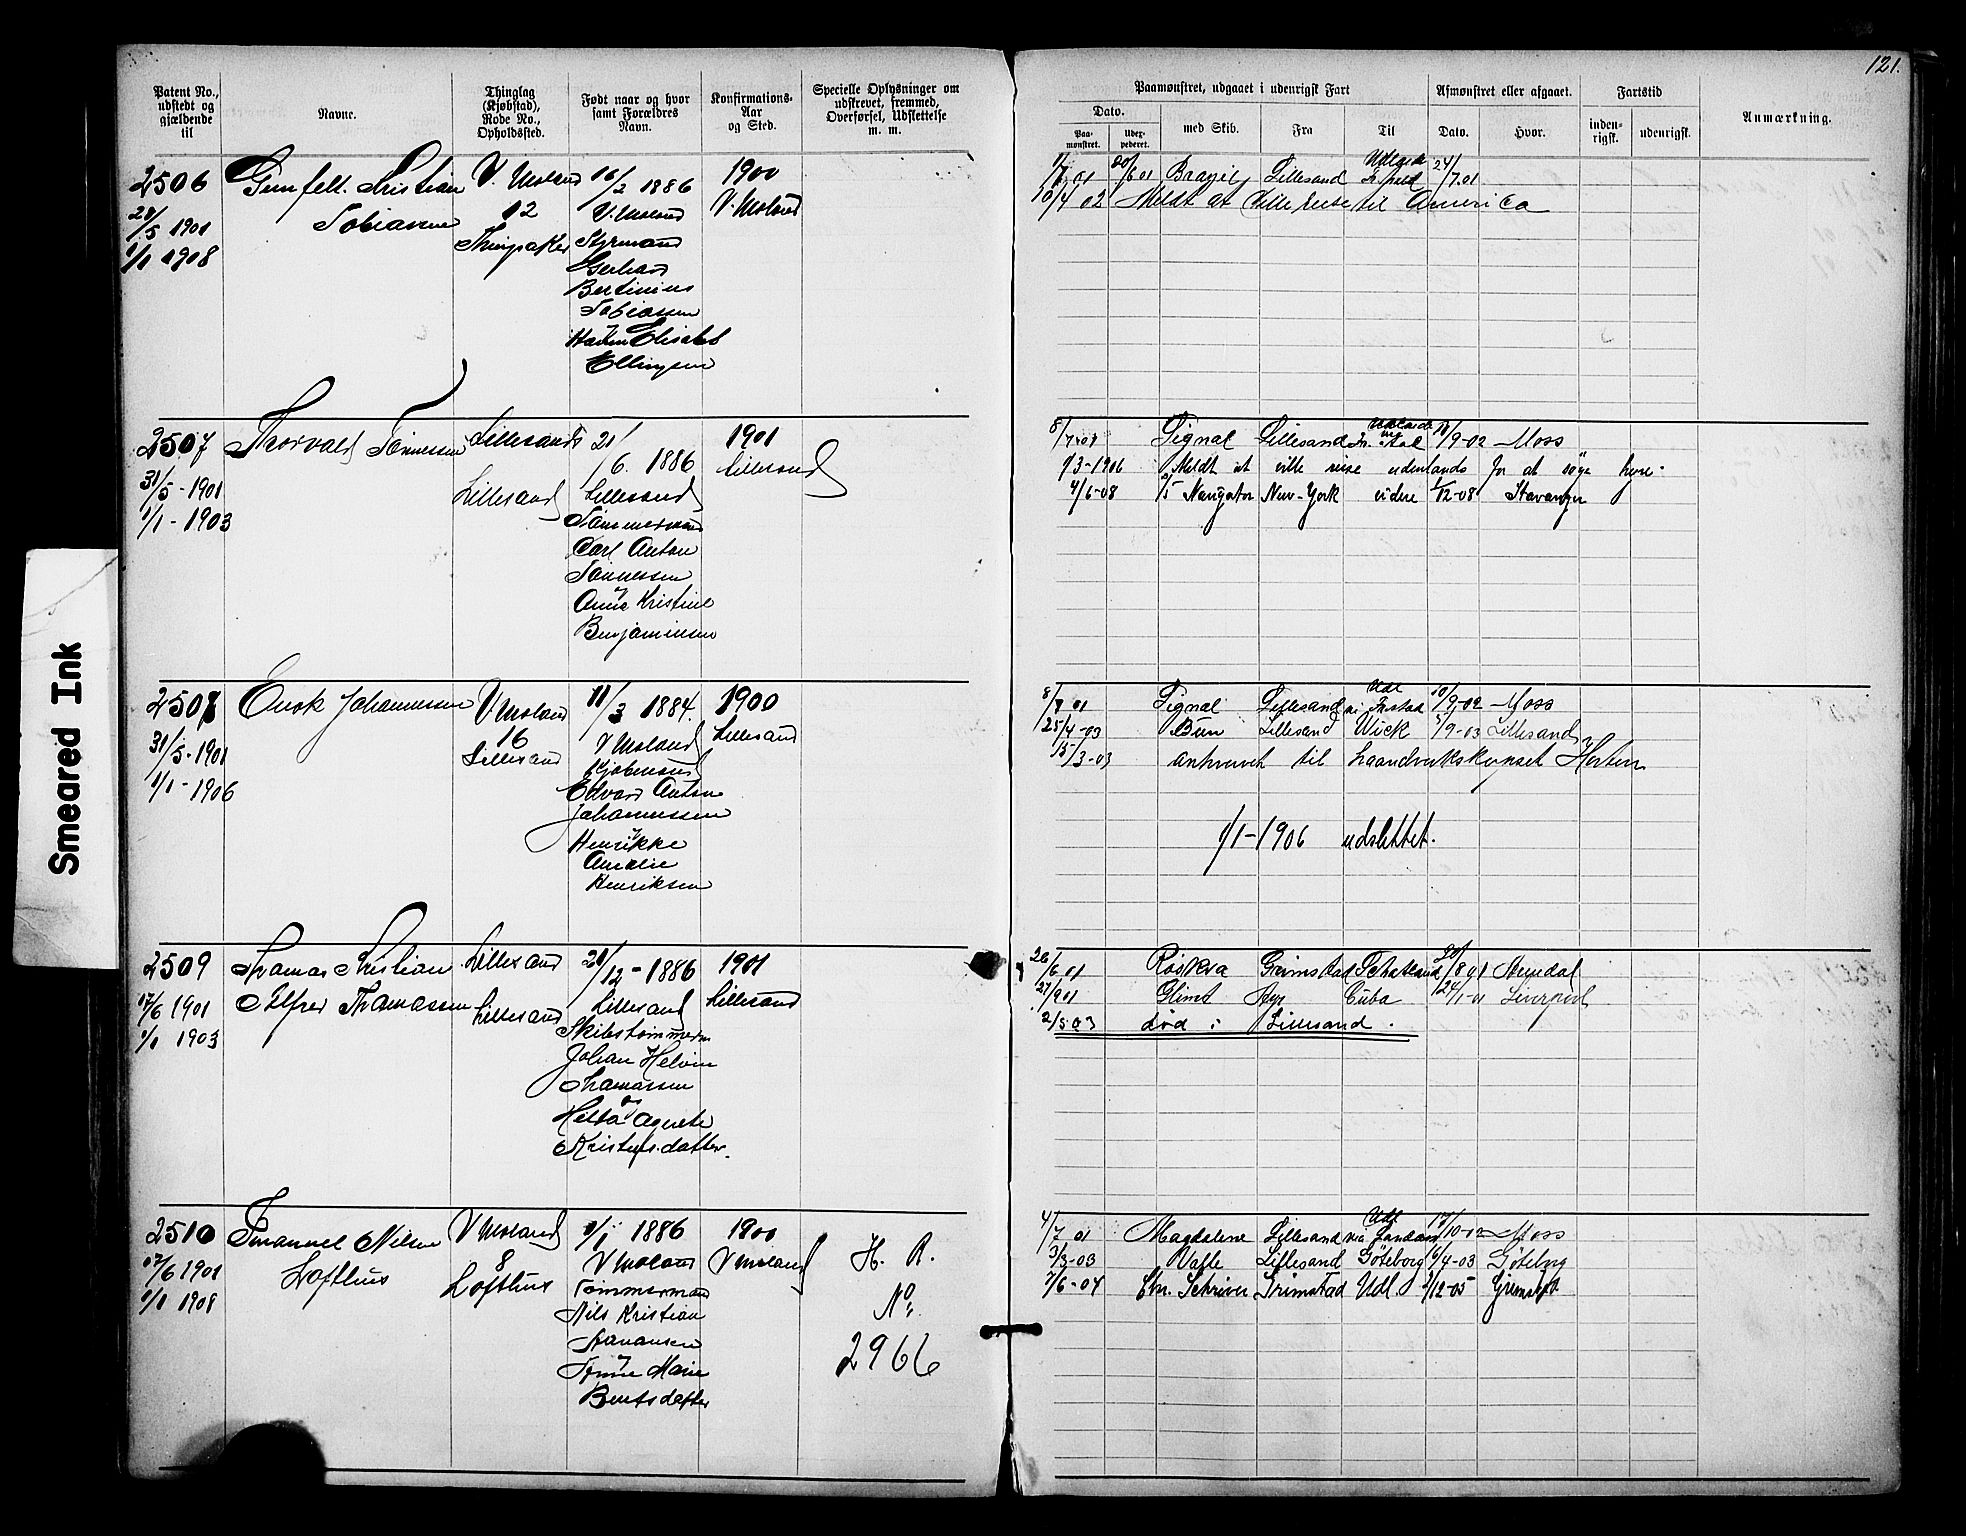 121.
Patent No., udstedt og gjældende til
Navne.
Thinglag (Kjøbstad), Rode No., Opholdssted.
Født naar og hvor samt Forældres Navn.
Konfirmations- Aar og Sted.
Specielle Oplysninger om udskrevet, fremmed, Overførsel, Udslettelse m. m.
Paamønstret, udgaaet i udenrigsk Fart
Afmønstret eller afgaaet.
Fartstid
Anmærkning.
Dato.
Paa- mønstret.
med Skib.
Fra
Til
Dato.
Hvor.
inden- rigsk.
udenrigsk.
2506
28/5 1901
1/1 1908
Gunfelt Kristian
Tobiassen
V. Moland
12
16/2 1886
V. Moland
Styrmand
Gerhard
Bertinius
Tobiassen
Elisabet
Ellingsen
1900
V. Moland
Lillesand
24/7 01
10/4 02 Meldt at ville reise til America
2507
31/5 - 1901
1/1 - 1903
Thorvald Tønnessen
Lillesands
Lillesand
21/6. 1886
Lillesand
Tømmermand
Carl Anton
Tønnessen
Anne Kristine
Benjaminsen
1901
Lillesand
8/7 01 Signal Lillesand /9-02 Moss
1/3-1906 Meldt at ville reise udenlands for at søge hyre.
4/6-08 Navigator New-York videre /12-08 Stavanger
250
31/5 - 1901
1/1 - 1906
Enok Johannessen
V Moland
16
Lillesand
11/3 1884.
V Moland
Edvard Anton
Johannessen
Henrikke
Amalie
Henriksen
1900
Lillesand
8/7 01 Signal Lillesand 10/9-02 Moss
25/4-03 Lillesand Wick 5/9-03 Lillesand
15/3-03 til haandverkskorpset Horten
1/1-1906 udslettet.
2509
17/6 1901
1/1 1903
Thomas Kristian
Alfred Thomassen
Lillesand
Lillesand
21/12 - 1886
Lillesand
Skibstømmerm
Johan Helvin
Thomassen
Agnete
1901
Lillesand
26/6 01 Røskva Grimstad Arendal
27/9 01 Glimt Ayr Cuba Liverpool
2/5 03 død i Lillesand.
2510
17/6 1901
1/1 1908
Emanuel Nilsen
Lofthus
V Moland
8
Lofthus
1/1 1886
V Moland
Tømmermand
Nils Kristian
Aanansen
Marie
Bentsdatter
1900
V Moland
H. R.
No.
2966
4/7 01 Magdalene Lillesand via 17/10-02 Moss
3/3-03 Lillesand Göteborg 6/4-03 Göteborg
7/6-04 Chr. Schriver Grimstad Udl. /12-05 Grimstad
Smeared Ink